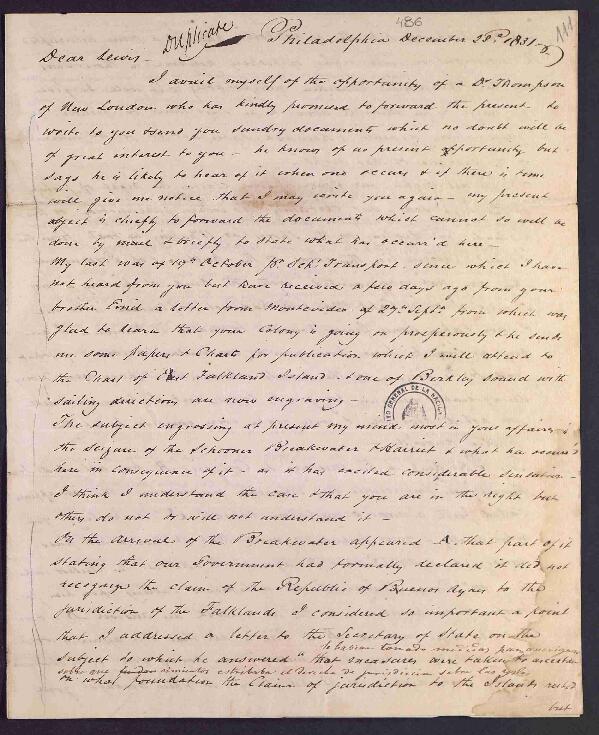 486
111
Duplicate
Philadelphia December 28th 1831
Dear Lewis
I avail myself of the opportunity of a Dr. Thompson
of New London who has kindly promised to forward the present to
write to you & send you sundry documents which no doubt will be
of great interest to you - he knows of no present opportunity but
says he is likely to hear of it when one occurs & if there is time
will give me notice that I may write you again - my present
object is chiefly to forward the documents which cannot so well be
done by mail & briefly to state what has occurr'd here -
My last was of 19th October pr Schr Transport since which I have
not heard from you but have received a few days ago from your
brother Emid a letter from Montevideo of 27th Septr from which was
glad to learn that your Colony is going on prosperously & he sends
me some papers & Charts for publication which I will attend to
the Chart of East Falkland Island & one of Berkley Sound with
sailing directions are now engraving -
The subject engrossing at present my mind most in your affairs is
the seizure of the Schooner Breakwater & Harriet & what has occurr'd
here in consequence of it - as it has excited considerable sensation -
I think I understand the case & that you are in the right but
others do not or will not understand it -
On the arrival of the Breakwater appeared A. that part of it
stating that our Government had formally declared it did not
recognize the claim of the Republic of Buenos Ayres to the
jurisdiction of the Falklands I considered so important a point
that I addressed a letter to the Secretary of State on the
se habian tomado medidas para averiguar
subject to which he answered "that measures were taken to ascertain
sobre que fundamentos estribaba el derecho de jurisdiccion sobre las Yslas
on what foundation the Claim of jurisdiction to the Islands rested
but